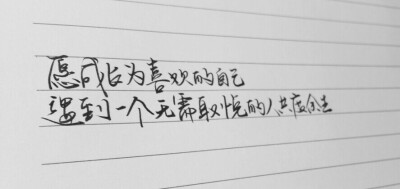 愿成为喜欢的自己
遇到一个无需取悦的人共度余生